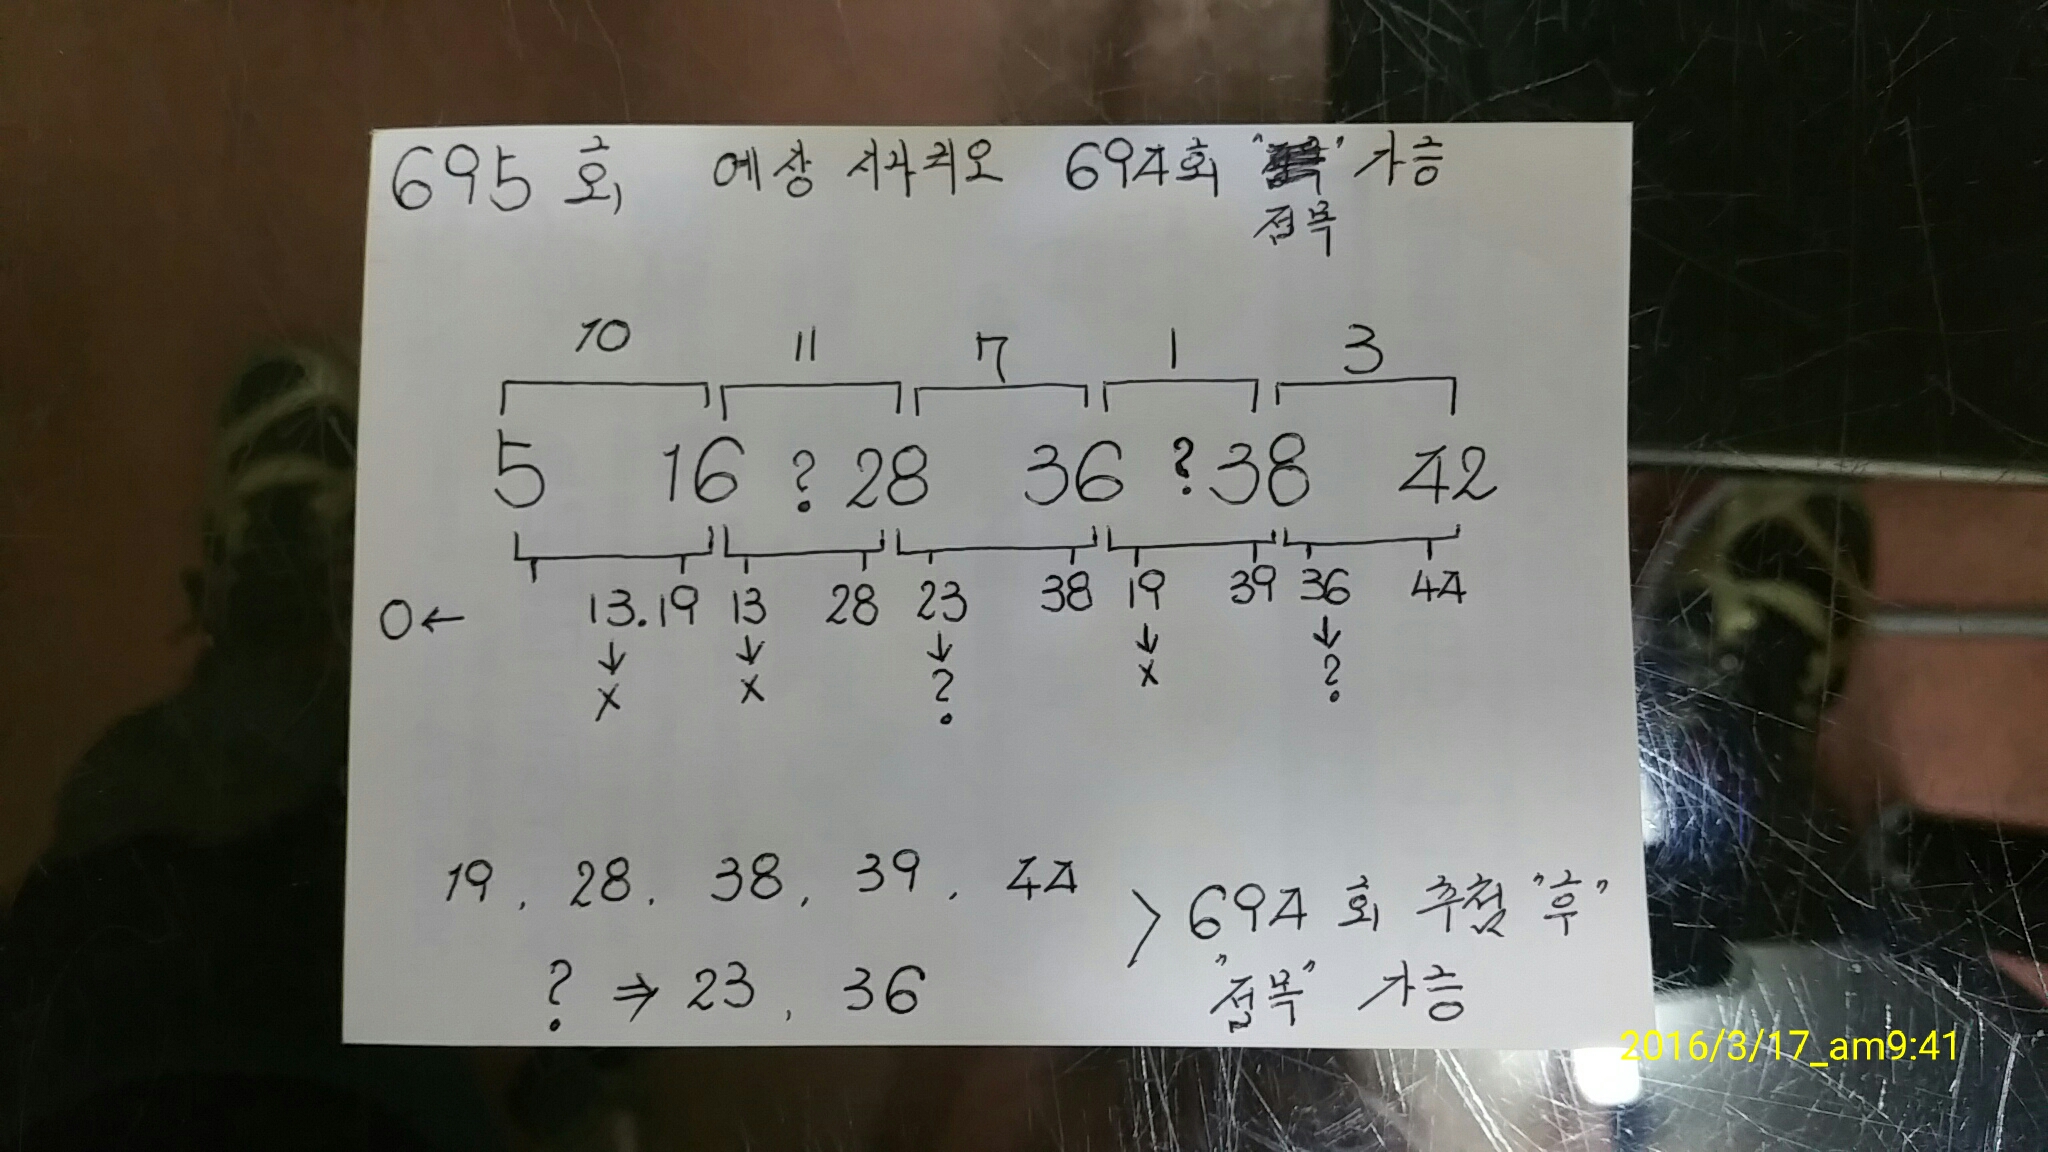 695회 예상 시나리오 694회 " " 가능
접목
10 11 7 1 3
5 16 ? 28 36 ? 38 42
0← 13.19 13 28 23 38 19 39 36 44
↓ ↓ ↓ ↓ ↓
x x ? x ?
19, 28, 38, 39, 44
> 694회 추첨 "후"
? ⇒ 23, 36 "접목" 가능
2016/3/17_am9:41